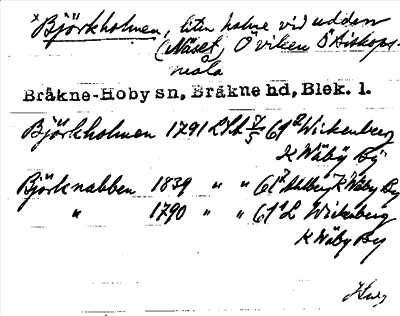 x Björkholmen, liten holme vid udden
(Näset) Öviken Ö Biskops-
måla
Bräkne-Hoby sn, Bräkne hd, Blek. l.
Björkholmen 1791 LSA 7/5 61² Wickenberg
K Wäby By
Björknabben 1839 " " 61⁷ Ahlberg K Wäby By
" 1790 " " 61¹ L Wickenberg
K Wäby By